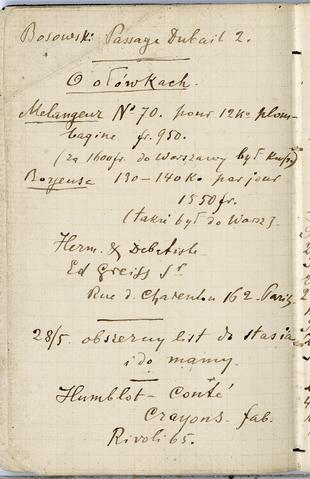 Bosowski Passage Dubail 2.
O ołówkach.
Melangeur No 70. pour 12 Ko plom-
bagine fr. 950.
(za 1600 fr. do Warszawy był kup)
Broyeuse 130-140 Ko par jour
1550 fr.
(takiż był do Warsz).
Herm. &
Ed Sr.
Rue d. Charenton 162. Paris
28/5. obszerny list do Stasia
i do mamy.
Humblot-Conté
Crayons fab.
Rivoli 65.